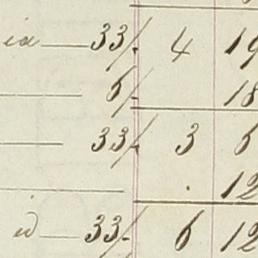 ia — 33/. 4 19
— 6/- 18
— 33/. 3 6
. 12
id — 33/- 6 12